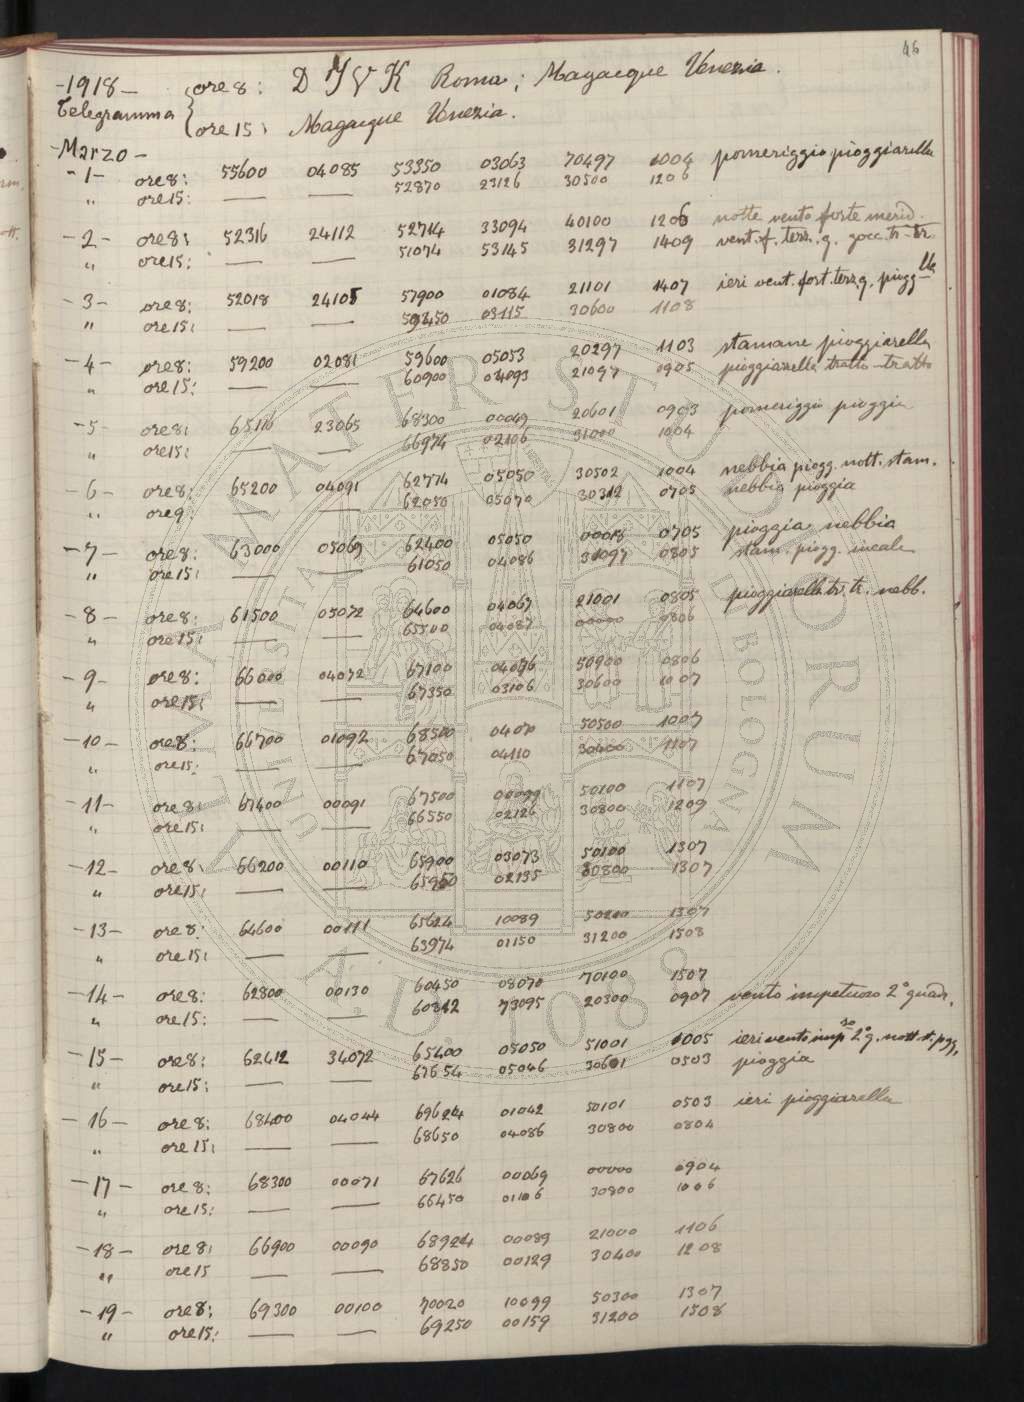 46
-1918- ore 8: D Y V K Roma; Magacque Venezia.
Telegramma
ore 15: Magacque Venezia.
-Marzo-
-1- ore 8: 55600 04085 53350 03063 70497 1004 pomeriggio pioggiarella
" ore 15: — — 52870 23126 30500 1206
-2- ore 8: 52316 24112 52714 33094 40100 1206 notte vento forte merid.
" ore 15: — — 51074 53145 31297 1409 vent. f. terz. q. gocc. tr-tr.
-3- ore 8: 52018 24105 57900 01084 21101 1407 ieri vent. fort. terz q. piogg lla
" ore 15: — — 59450 03115 30600 1108
-4- ore 8: 59200 02081 59600 05053 20297 1103 stamane pioggiarella
" ore 15: — — 60900 04093 21097 0905 pioggiarella tratto-tratto
-5- ore 8: 65116 23065 68300 00049 20601 0903 pomeriggio pioggia
" ore 15: — — 66974 02106 31000 1004
-6- ore 8: 65200 04091 62774 05050 30502 1004 nebbia piogg. nott. stam.
" ore 9: — — 62050 05070 30312 0705 nebbia pioggia
-7- ore 8: 63000 05069 62400 05050 00018 0705 pioggia nebbia
" ore 15: — — 61050 04086 31097 0805 stam. piogg.
-8- ore 8: 61500 05072 64600 04067 21001 0805 pioggiarella tr. tr. nebb.
" ore 15: — — 65500 04087 00000 0806
-9- ore 8: 66000 04072 67100 04076 50900 0806
" ore 15: — — 67350 03106 30600 1007
-10- ore 8: 66700 01092 68500 04070 50500 1007
" ore 15: — — 67050 04110 30400 1107
-11- ore 8: 67400 00091 67500 00099 50100 1107
" ore 15: — — 66550 02126 30800 1209
-12- ore 8: 66200 00110 65900 03073 50100 1307
" ore 15: — — 65950 02135 30800 1307
-13- ore 8: 64600 00111 65624 10089 50200 1307
" ore 15: — — 63974 01150 31200 1508
-14- ore 8: 62800 00130 60450 08070 70100 1507
" ore 15: — — 60842 73095 20300 0907 vento impetuoso 2° quadr.
-15- ore 8: 62412 34072 65400 05050 51001 1005 ieri vento imp so 2° q. nott. st. pgg.
" ore 15: — — 67654 05046 30601 0503 pioggia
-16- ore 8: 68400 04044 69624 01042 50101 0503 ieri pioggiarella
" ore 15: — 68650 04086 30800 0804
-17- ore 8: 68300 00071 67626 00069 00000 0904
" ore 15: — — 66450 01106 30800 1006
-18- ore 8: 66900 00090 68924 00089 21000 1106
" ore 15 — — 68850 00129 30400 1208
-19- ore 8: 69300 00100 70020 10099 50300 1307
" ore 15: — — 69250 00159 31200 1508
ALMA MATER STUDIORUM
UNIVERSITAS BOLOGNA
A.D. 1088